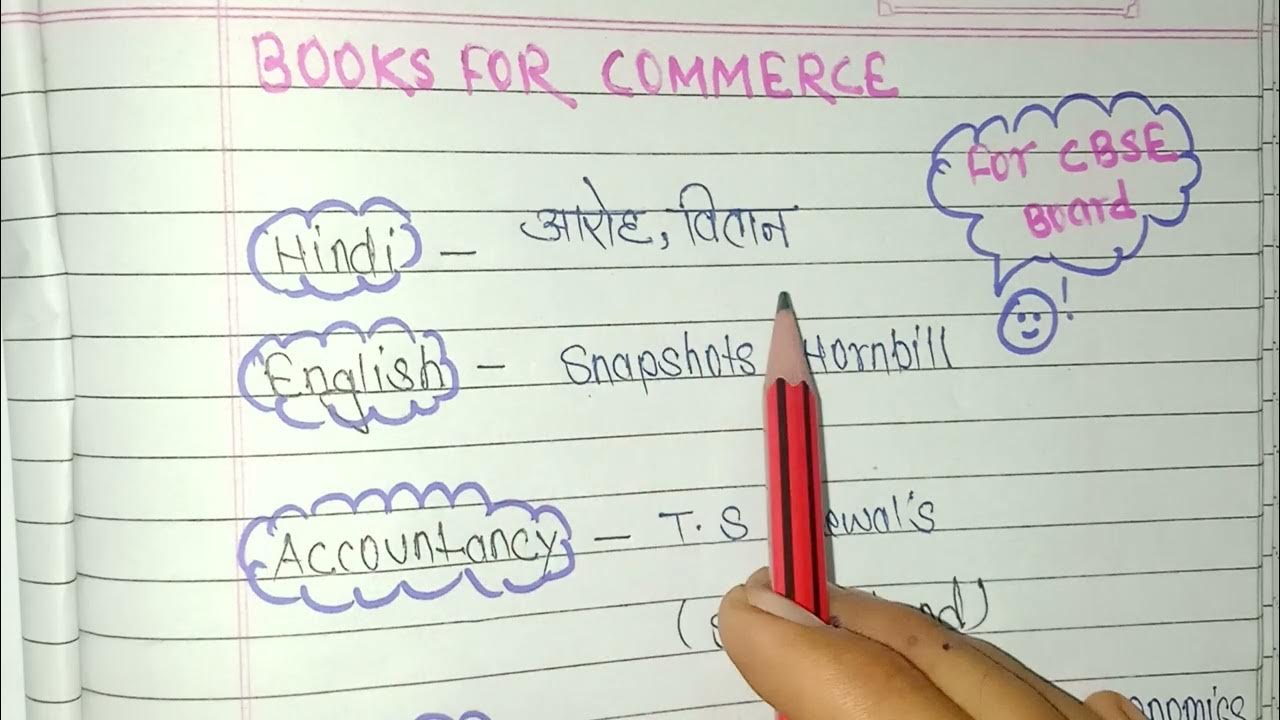 BOOKS FOR COMMERCE
For CBSE
Board
Hindi - आरोह, वितान
English - Snapshots Hornbill
Accountancy - T.S